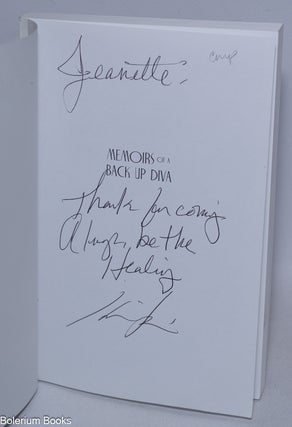 Jeanette:
comp
MEMOIRS OF A
BACK UP DIVA
Thank for coming
be the
Healing
Bolerium Books